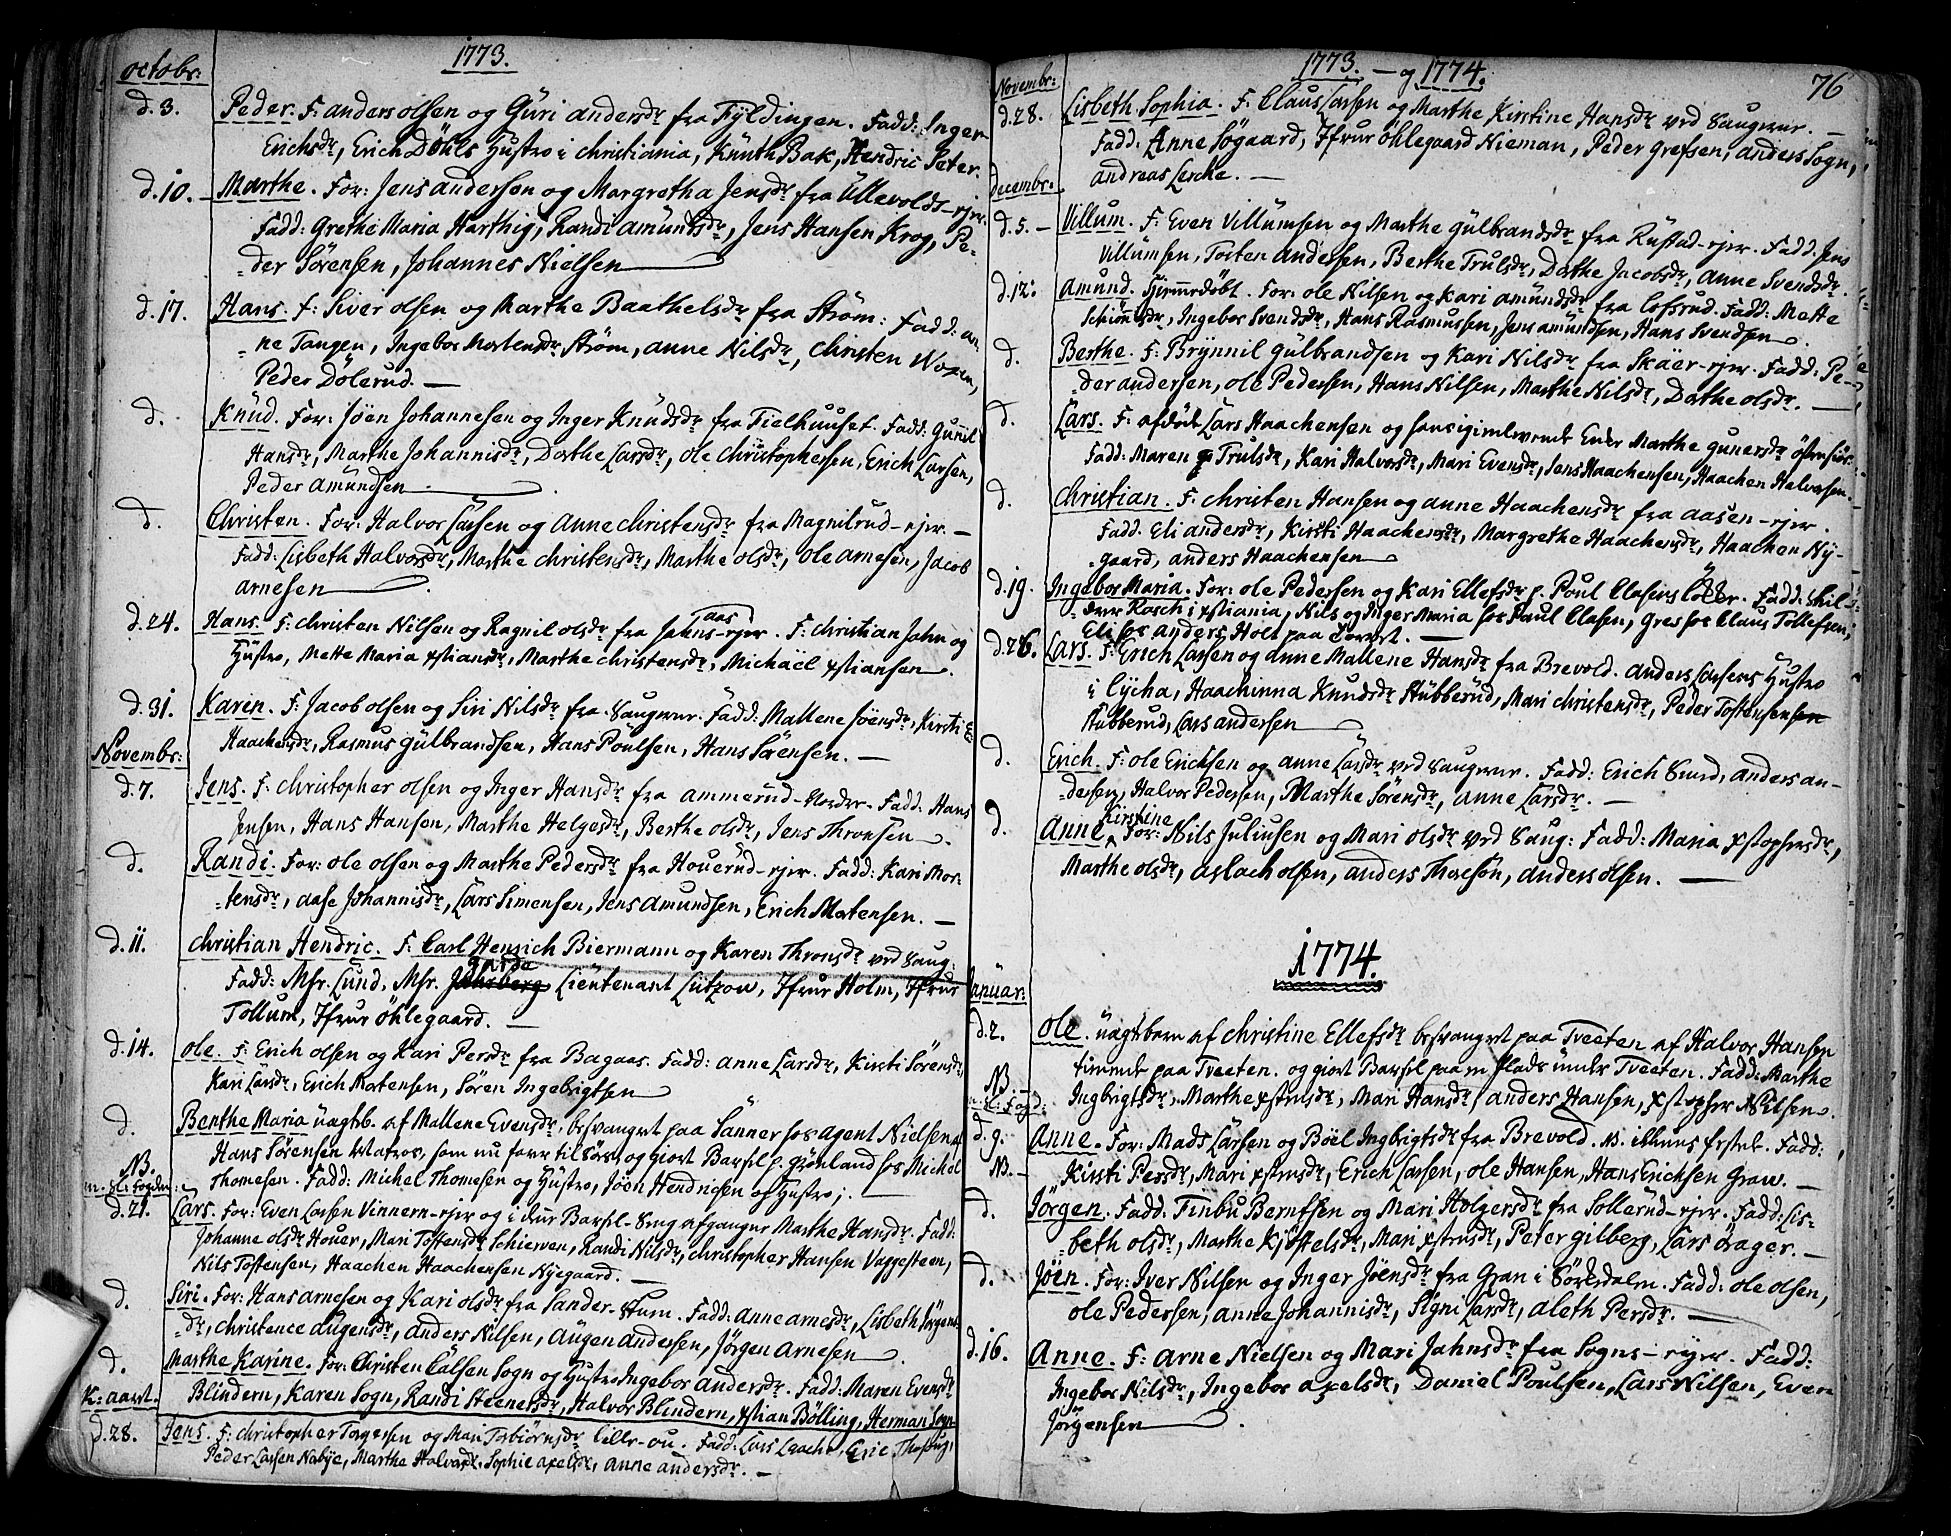 1773.
octobr:
d. 3. Peder. F: anders olsen og Guri andersdr fra Fyldingen. Fadd: Inger
Erichsdr, Erich Döhls Hustro i christiania, Knuth Bak, Hendric Peter.
d. 10. Marthe. For: Jens andersen og Margretha Jensdr fra Ullevolds-ejer.
Fadd: Grethe Maria Harthig, Randi amundsdr, Jens Hansen Krog, Pe-
der Sörensen, Johannes Nielsen
d. 17. Hans. F: Siver olsen og Marthe Baathelsdr fra Ström: Fadd: an
ne Tangen, Ingebor Mortensdr Ström, anne Nilsdr, christen Woxen,
Peder Dölerud.
d. Knud. For: Jöen Johannesen og Inger Knudsdr fra Fielhuuset. Fadd: Gunil
Hansdr, Marthe Johannisdr, Dorthe Larsdr, ole christophersen, Erich Larsen,
Peder amundsen
d. Christen. For: Halvor Larsen og anne christensdr fra Magnilrud-ejer.
Fadd: Lisbeth Halvorsdr, Marthe christensdr, Marthe olsdr, ole arnesen, Jacob
arnesen
d. 24. Hans. F: christen Nilsen og Ragnil olsdr fra Jahns-ejer. F: christian Jahn og
Hustro, Mette Maria xstiansdr, Marthe christensdr, Michäel xstiansen.
d. 31. Karen. F: Jacob olsen og Siri Nilsdr fra Saugene. Fadd: Mallene Jöensdr, Kirsti
Haachensdr, Rasmus Gulbrandsen, Hans Poulsen, Hans Sörensen.
Novembr:
d. 7. Jens. F: christopher olsen og Inger Hansdr fra ammerud-Nordre. Fadd: Hans
Jensen, Hans Hansen, Marthe Helgesdr, Berthe olsdr, Jens Thronsen.
d. Randi. For: ole olsen og Marthe Pedersdr fra Houerud-ejer. Fadd: Kari Mor-
tensdr, aase Johannisdr, Lars Simensen, Jens Amundsen, Erich Mortensen.
d. 11. christian Hendric. F: Carl Henrich Biermann og Karen Thronsdr ved Saug:
Fadd: Msr. Lund, Msr. Lieutenant Lützow, Jfrue Holm, Jfrue
Tollum, Jfrue Öhlegaard.
d. 14. ole. F: Erich olsen og Kari Persdr fra Bagaas. Fadd: anne Larsdr, Kirsti Sörensdr,
Kari Larsdr, Erich Mortensen, Sören Ingebrigtsen
d. Benthe Maria uægtb. af Mallene Evensdr, besvangret paa Sanner hos agent Nielsen af
Hans Sörensen Matros, som nu farer til Söes, og giort Barsel p. Grönland hos Michel
NB. Thomesen. Fadd: Michel Thomesen og Hustro, Jöen Hendricsen og Hustro;
d. 21. Lars. For: Even Larsen Vinnern-ejer og i der Barsel-Seng afgangne Marthe Hansdr. Fadd:
Johanne olsdr Houer, Mari Tostensdr Schierven, Randi Nilsdr, christopher Hansen Vaggesteen,
Nils Tostensen, Haachen Haachensen Nyegaard.
d. Siri. For: Hans arnesen og Kari olsdr fra Sander-Stuen. Fadd: anne arnesdr, Lisbeth Jörgens-
dr, christence augensdr, anders Nilsen, Augen andersen, Jörgen Arnesen.
d. Marthe Karine. For: Christen Calsen Sogn og Hustro Ingebor andersdr. Fadd: Maren Evensdr
K: aaret. Blindern, Karen Sogn, Randi Heenetsdr, Halvor Blindern, xstian Bölling, Herman Sogn
d. 28. Jens. F: christopher Torgersen og Mari Torbiörnsdr Lille-ou. Fadd: Lars
Peder Larsen Nabye, Marthe Halvorsdr, Sophie axelsdr, anne andersdr.
1773. og 1774.
76
Novembr:
d. 28. Lisbeth Sophia. F: Claus Larsen og Marthe Kirstine Hansdr ved Saugene.
Fadd: Anne Sögaard, Jfrue Öhlegaard Nieman, Peder Grefsen, anders Sogn,
andreas Lercke.
Decembr:
d. 5. Villum. F: Even Villumsen og Marthe Gulbrandsdr fra Rustad-ejer. Fadd: Jens
Villumsen, Tosten Andersen, Berthe Trulsdr, Dorthe Jacobsdr, anne Svendsdr.
d. 12. Amund. Hjemedöbt. For: ole Nilsen og Kari amundsdr fra Lofsrud. Fadd: Mette
Ingebor Svendsdr, Hans Rasmussen, Jens amundsen, Hans Svendsen.
d. Berthe. F: Brynnil Gulbrandsen og Kari Nilsdr fra Skäer-ejer. Fadd: Pe-
der andersen, ole Pedersen, Hans Nilsen, Marthe Nilsdr, Dorthe olsdr.
d. Lars. F: afdöde Lars Haachensen og hans igienlevende Enke Marthe Gunersdr
Fadd: Maren Trulsdr, Kari Halvorsdr, Mari Evensdr, Jens Haachensen, Haachen Halvorsen.
d. Christian. F: christen Hansen og anne Haachensdr fra aasen-ejer.
Fadd: Eli andersdr, Kirsti Haachensdr, Margrethe Haachensdr, Haachen Ny-
gaard, anders Haachensen
d. 19. Ingebor Maria. For: ole Pedersen og Kari Ellefsdr p. Poul Clasens Lökke. Fadd:
Rosch i xstiania, Nils og Inger Maria hos Poul Clasen, Gres hos Claus Tollefsen,
Eli hos Anders Holt paa Torvet.
d. 26. Lars. F: Erich Larsen og anne Mallene Hansdr fra Brevold. Anders Larsens Hustro
i Lycha, Haachinna Knudsdr Stubberud, Mari christensdr, Peder Tostensen
Stubberud, Lars andersen
d. Erich. F: ole Ericksen og anne Larsdr ved Saugene. Fadd: Erich Svend, anders an-
dersen, Halvor Pedersen, Marthe Sörensdr, anne Larsdr.
Kirstine
d. Anne. For: Nils Juliusen og Mari olsdr ved Saug: Fadd: Maria xstophersdr,
Marthe olsdr, aslach olsen, anders Thoresön, anders olsen.
1774.
Januar:
d. 2. ole. uægtbarn af christine Ellefsdr besvangret paa Tveeten af Halvor Hansen
tienende paa Tveeten. og giort Barsel paa en Plads under Tveeten. Fadd: Marthe
NB. Ingbrigtsdr, Marthe xstensdr, Mari Hansdr, anders Hansen, xstopher Nilsen.
d. 9. Anne. For: Mads Larsen og Böel Ingbrigtsdr fra Brevold. Fadd:
NB. Kirsti Persdr, Mari xstensdr, Erich Larsen, ole Hansen, Hans Erichsen Graw.
d. Jörgen. Fadd: Tinbu Berntsen og Mari Holgersdr fra Sollerud-ejer. Fadd: Lis-
beth olsdr, Marthe Kjöstelsdr, Mari xstensdr, Peter Gilberg, Lars örager.
d. Jöen. For: Iver Nilsen og Inger Jöensdr fra Gran i Sörkedalen. Fadd: ole olsen,
ole Pedersen, anne Johannisdr, Signi Larsdr, aleth Persdr.
d. 16. Anne. F: arne Nielsen og Mari Jahnsdr fra Sogns-ejer. Fadd:
Ingebor Nilsdr, Ingebor axelsdr, Daniel Poulsen, Lars Nilsen, Even
Jörgensen